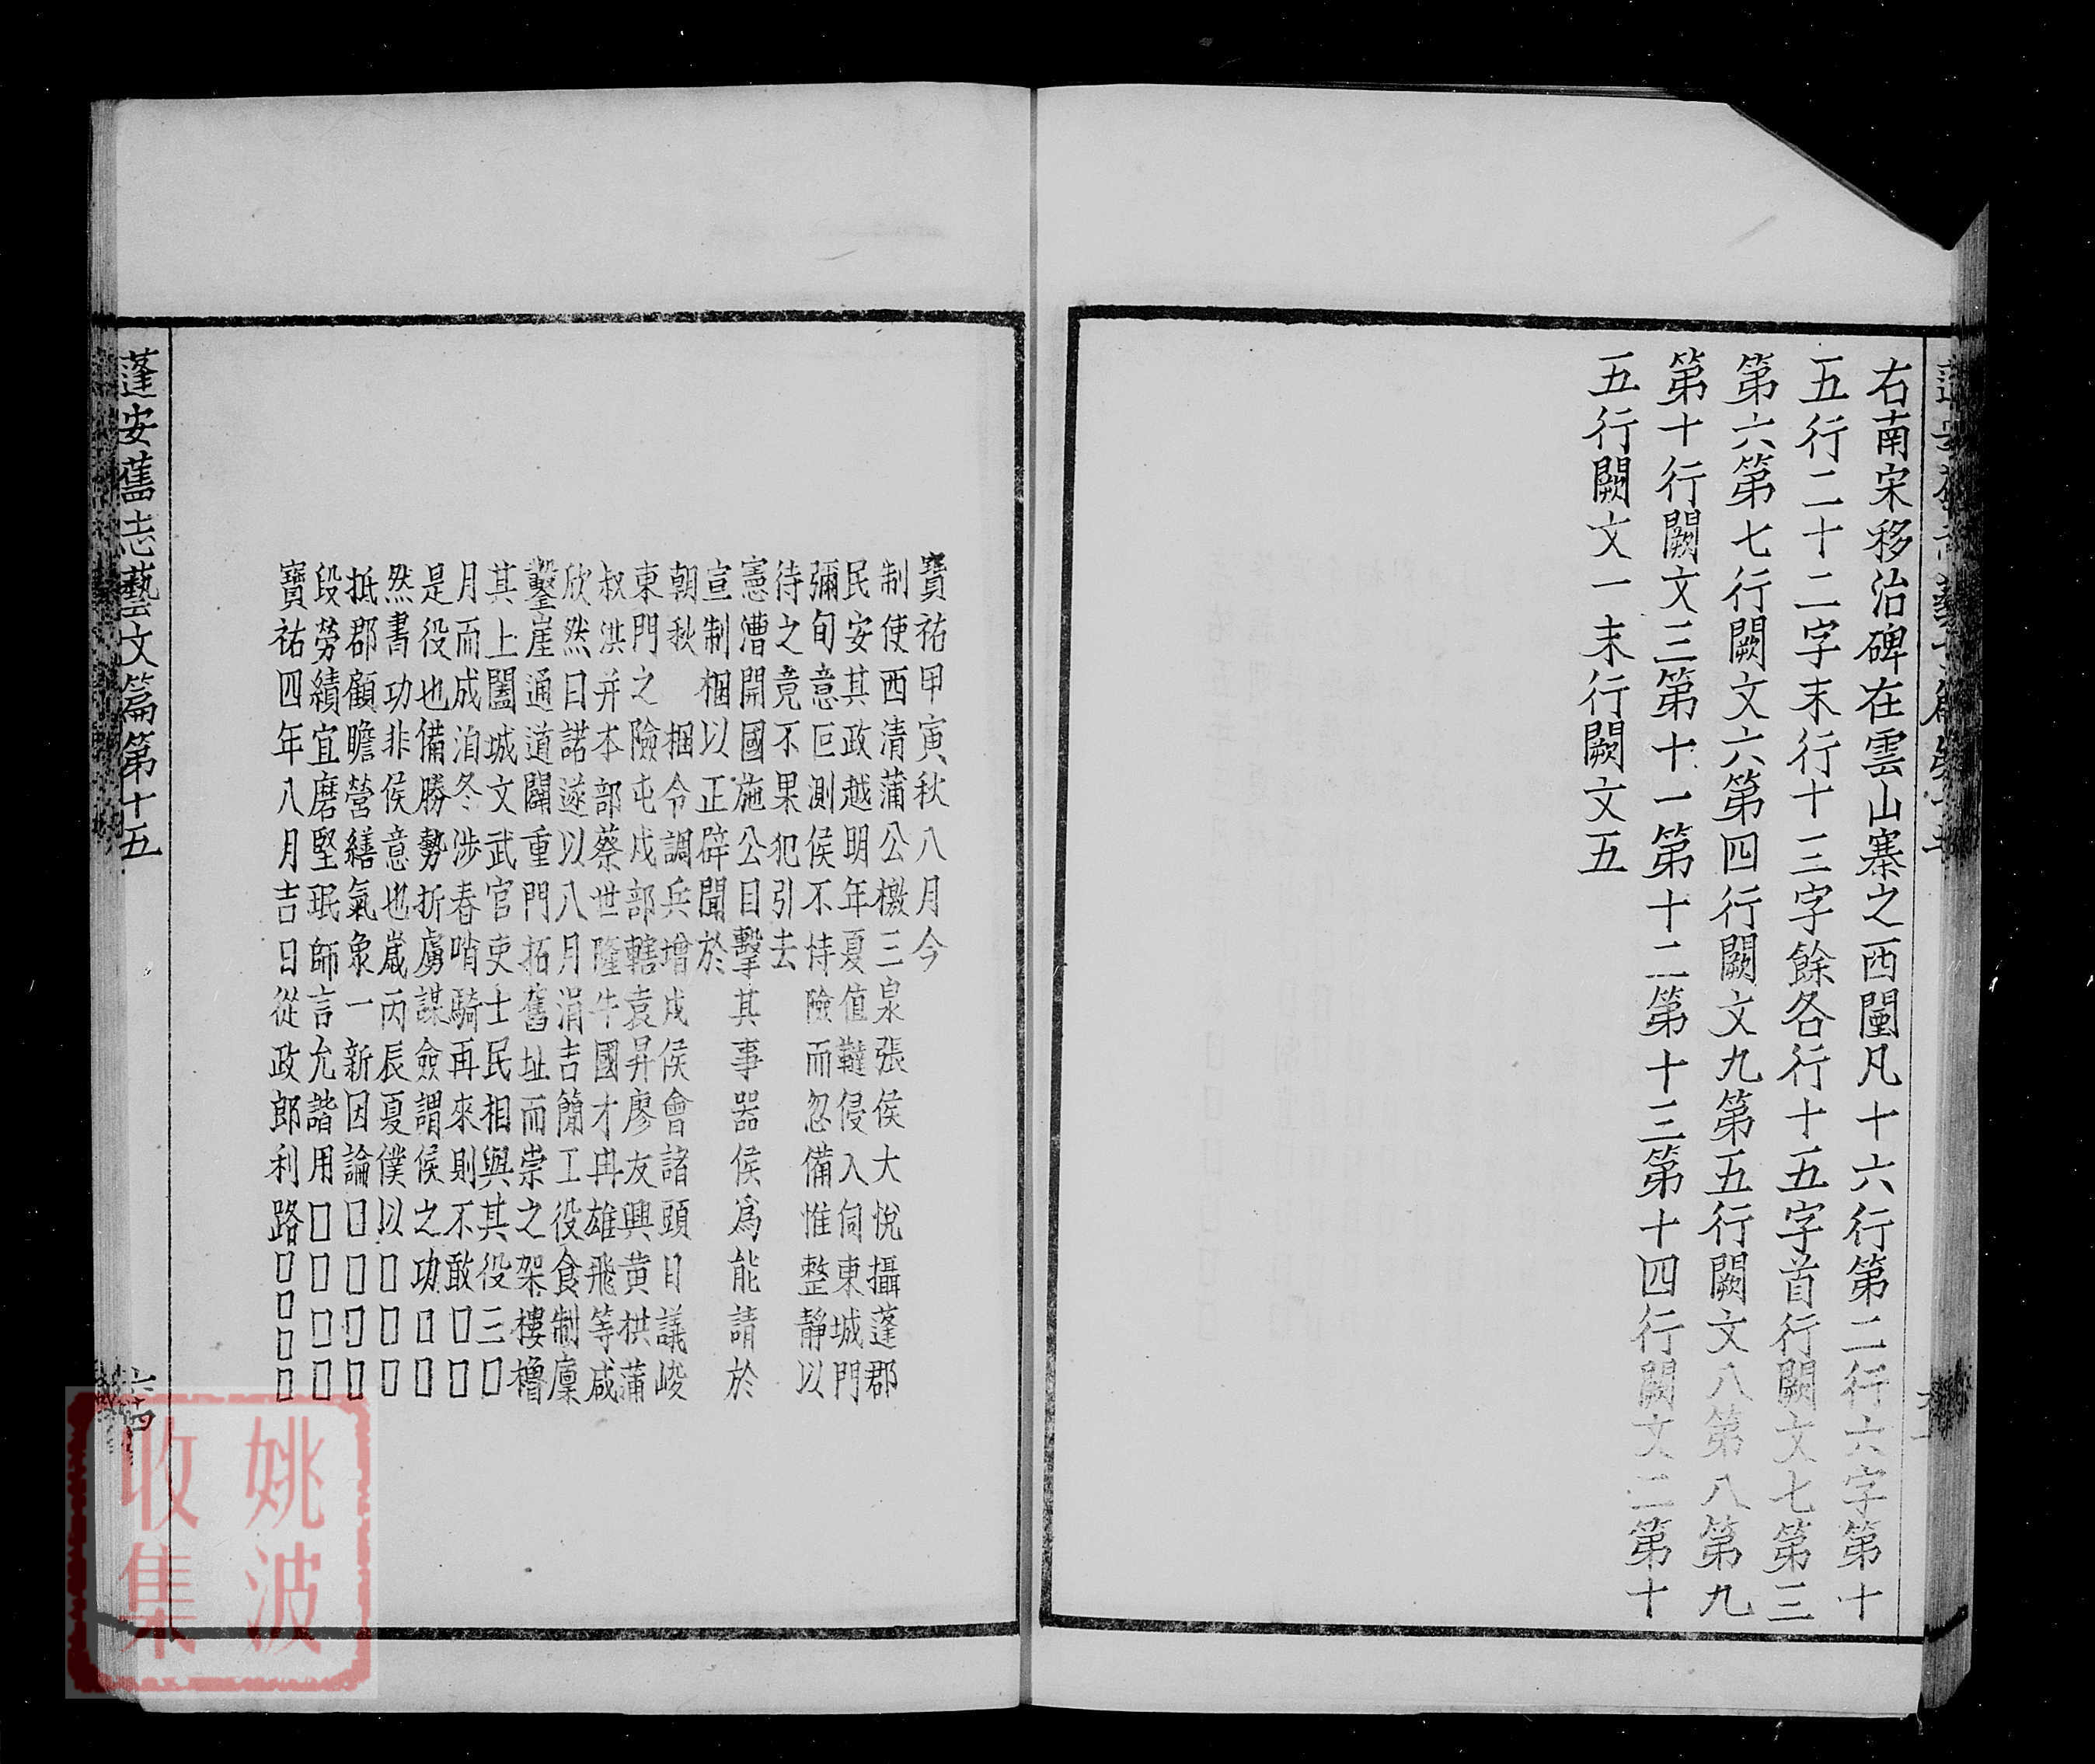 右南宋移治碑在雲山寨之西闉凡十六行第二行六字第十
五行二十二字末行十三字餘各行十五字首行闕文七第三
第六第七行闕文六第四行闕文九第五行闕文八第八第九
第十行闕文三第十一第十二第十三第十四行闕文二第十
五行闕文一末行闕文五
寶祐甲寅秋八月今
制使西清蒲公檄三泉張侯大悅攝蓬郡
民安其政越明年夏值韃侵入伺東城門
彌旬意叵測侯不恃險而忽備惟整靜以
待之竟不果犯引去
憲漕開國施公目擊其事器侯為能請於
宣制梱以正辟聞於
朝秋 梱令調兵增戍侯會諸頭目議峻
東門之險屯戍部轄袁昇廖友興黄栱蒲
叔洪并本部蔡世隆牛國才冉雄飛等咸
欣然曰諾遂以八月涓吉簡工役食制廩
鑿崖通道闢重門拓舊址而崇之架樓櫓
其上闔城文武官吏士民相與其役三□
月而成洎冬涉春哨騎再來則不敢□□
是役也備勝勢折虜謀僉謂侯之功□□
然書功非侯意也歲丙辰夏僕以□□□
抵郡顧瞻營繕氣象一新因論□□□□
段勞績宜磨堅珉師言允諧用□□□□
寶祐四年八月吉日從政郎利路□□□□
蓬安舊志藝文篇第十五
六四
姚波
收集